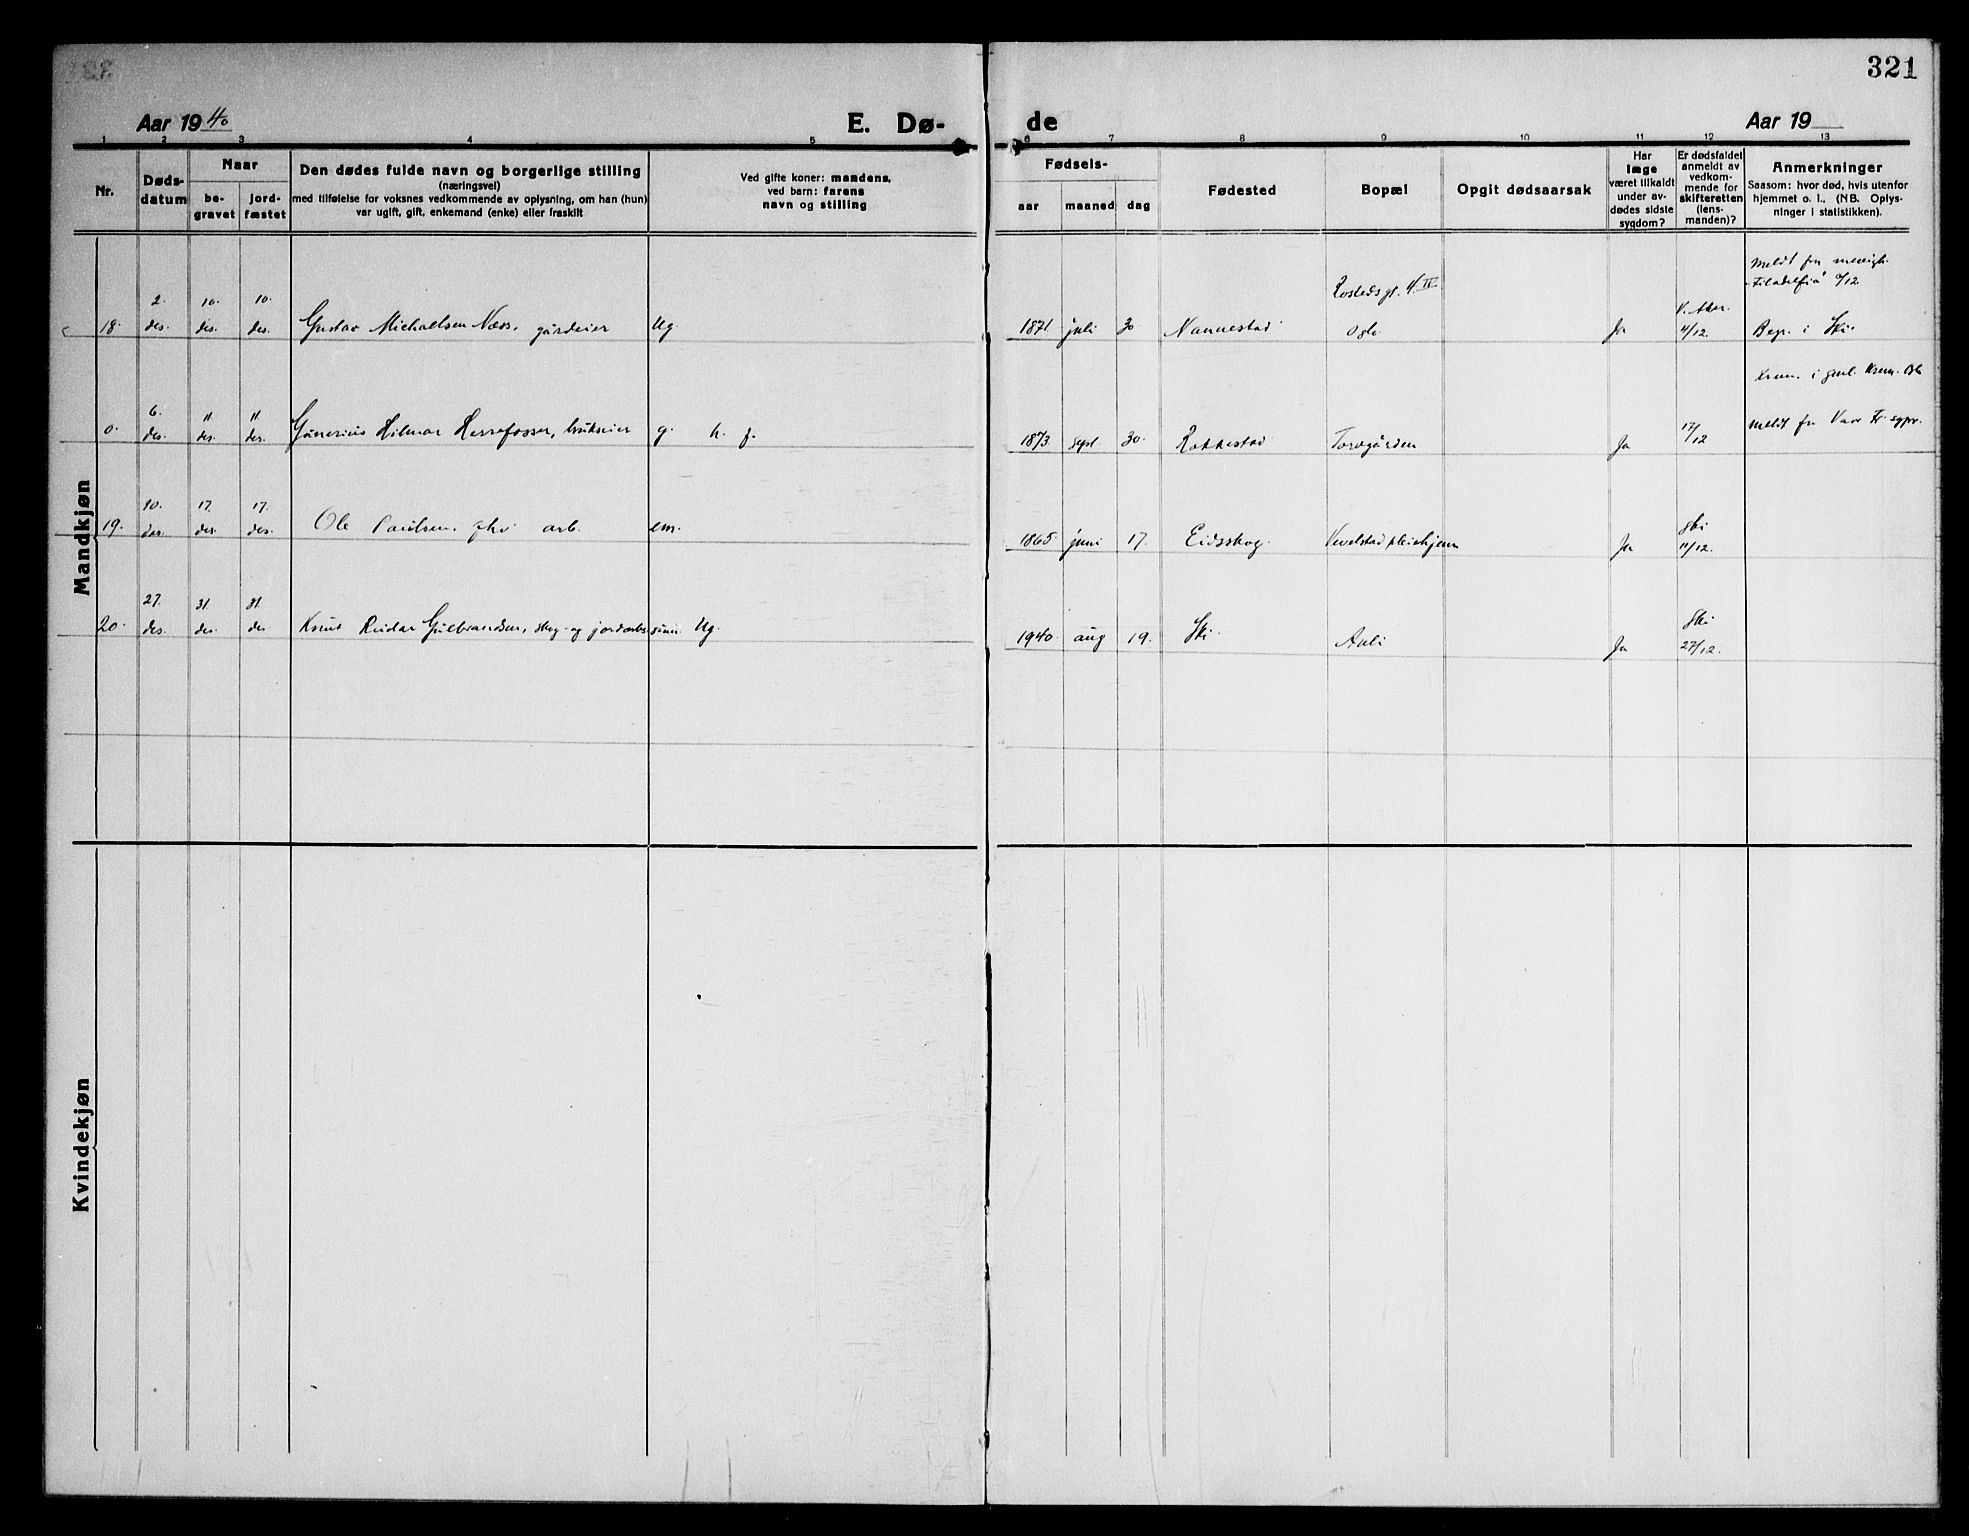 321
Aar 1940
E. Dø-
de
Aar 19
1 2 3 4 5 6 7 8 9 10 11 12 13
Nr.
Døds-
datum
Naar
be-
gravet
jord-
fæstet
Den dødes fulde navn og borgerlige stilling
(næringsvei)
med tilføielse for voksnes vedkommende av oplysning, om han (hun)
var ugift, gift, enkemand (enke) eller fraskilt
Ved gifte koner: mandens,
ved barn: farens
navn og stilling
Fødsels-
aar
maaned
dag
Fødested
Bopæl
Opgit dødsaarsak
Har
læge
været tilkaldt
under av-
dødes sidste
sygdom?
Er dødsfaldet
anmeldt av
vedkom-
mende for
skifteretten
(lens-
manden)?
Anmerkninger
Saasom: hvor død, hvis utenfor
hjemmet o. l., (NB. Oplys-
ninger i statistikken).
Mandkjøn
2. 10. 10. Meldt fra menigh.
Filadelfia
18. des. des. des. Gustav Michaelsen Næss, gårdeier Ug. 1871 juli 30 Nannestad Oslo Ja V. Aker 4/12. Begr. i Ski.
Krem. i
6. 11. 11.
0. des. des. des. Gunerius Hilmar Herrefosser, brukseier g. h. f. 1873 sept 30. Rakkestad Toregården Ja 17/12 meldt fra Vår Fr.
10. 17. 17.
19. des. des. des. Ole Paulsen, arb. em. 1865 juni 17. Eidsskog. Vevelstad pleiehjem Ja Ski 11/12.
27. 31. 31.
20. des. des. des Knut Reidar Gulbrandsen, skog- og jordarb. sønn. Ug. 1940. aug 19. Ski. Ja Ski 27/12.
Kvindekjøn